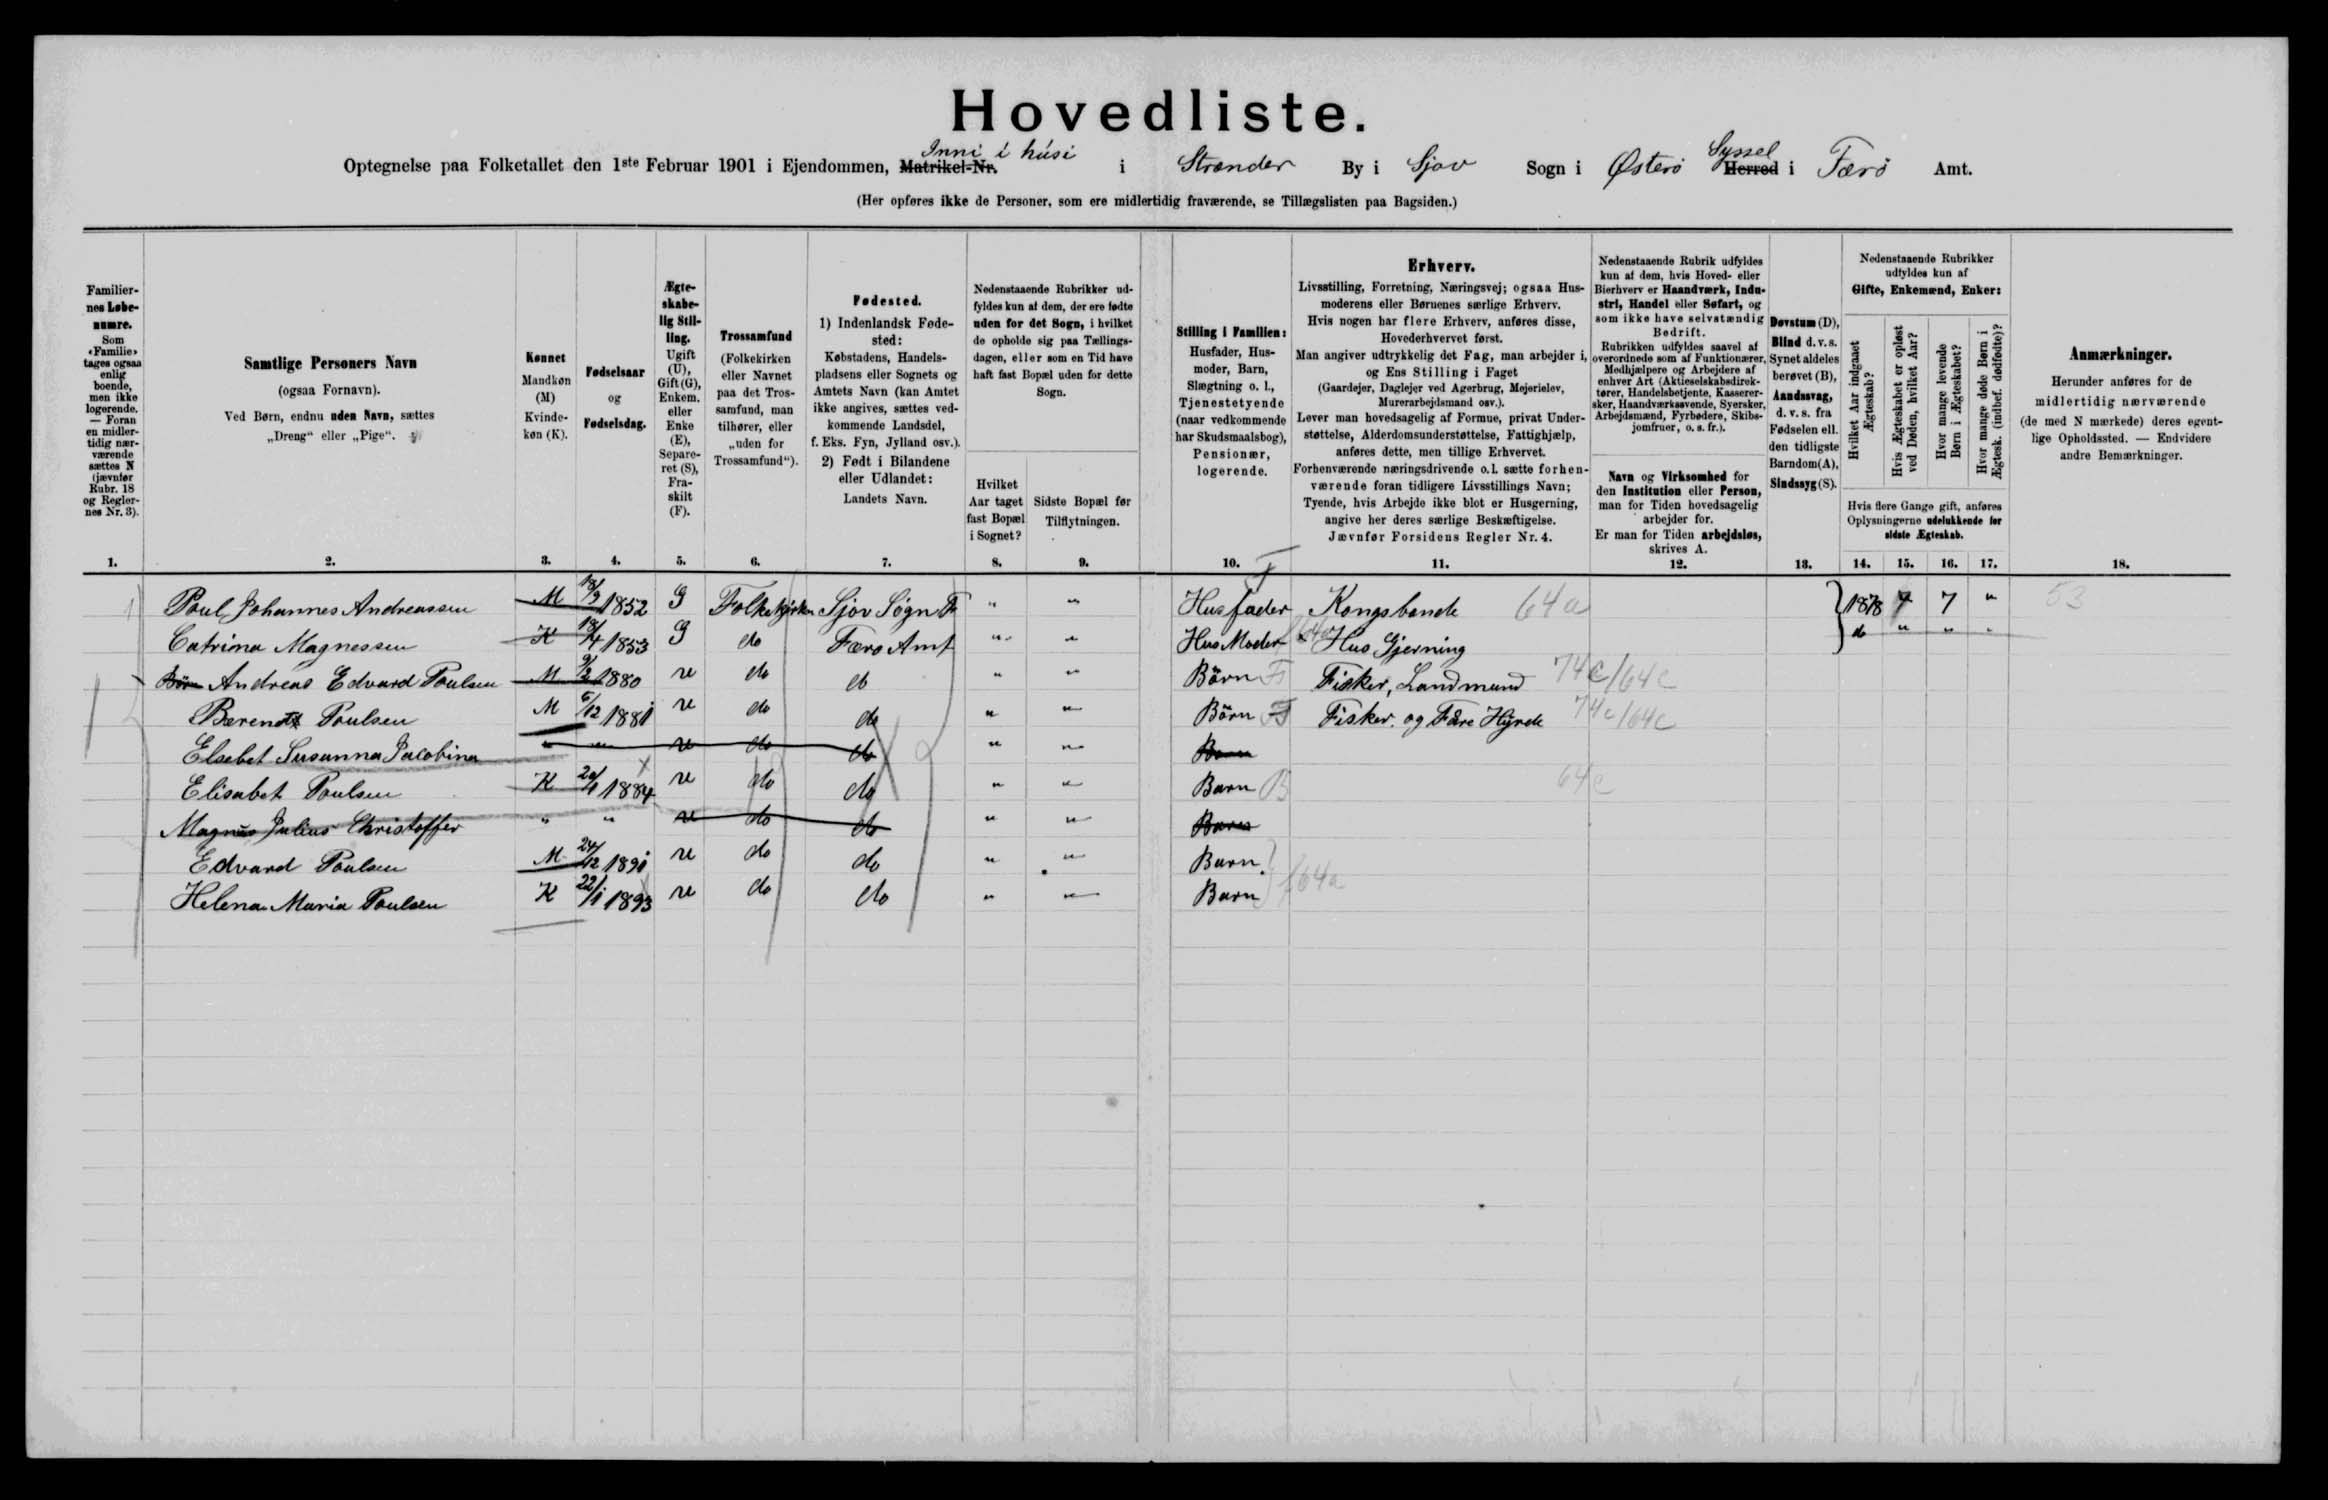 Hovedliste.
Inni í húsi
Syssel
Optegnelse paa Folketallet den 1ste Februar 1901 i Ejendommen, Matrikel-Nr. i Strænder By i Sjov Sogn i Østerö Herred i Færö Amt.
(Her opføres ikke de Personer, som ere midlertidig fraværende, se Tillægslisten paa Bagsiden.)
Familiernes Løbenumre.
Som «Familie» tages ogsaa enlig boende, men ikke logerende. — Foran en midlertidig nærværende sættes N (jævnfør Rubr. 18 og Reglernes Nr. 3).
Samtlige Personers Navn
(ogsaa Fornavn).
Ved Børn, endnu uden Navn, sættes
„Dreng“ eller „Pige“.
Kønnet
Mandkøn (M)
Kvindekøn (K).
Fødselsaar
og
Fødselsdag.
Ægteskabelig Stilling.
Ugift (U), Gift (G), Enkem. eller Enke (E), Separeret (S), Fraskilt (F).
Trossamfund
(Folkekirken eller Navnet paa det Trossamfund, man tilhører, eller „uden for Trossamfund“).
Fødested.
1) Indenlandsk Fødested:
Købstadens, Handelspladsens eller Sognets og Amtets Navn (kan Amtet ikke angives, sættes vedkommende Landsdel, f. Eks. Fyn, Jylland osv.).
2) Født i Bilandene eller Udlandet:
Landets Navn.
Nedenstaaende Rubrikker udfyldes kun af dem, der ere fødte uden for det Sogn, i hvilket de opholde sig paa Tællingsdagen, eller som en Tid have haft fast Bopæl uden for dette Sogn.
Hvilket Aar taget fast Bopæl i Sognet?
Sidste Bopæl før Tilflytningen.
Stilling i Familien:
Husfader, Husmoder, Barn, Slægtning o. l., Tjenestetyende (naar vedkommende har Skudsmaalsbog), Pensionær, logerende.
Erhverv.
Livsstilling, Forretning, Næringsvej; ogsaa Husmoderens eller Børnenes særlige Erhverv.
Hvis nogen har flere Erhverv, anføres disse, Hovederhvervet først.
Man angiver udtrykkelig det Fag, man arbejder i, og Ens Stilling i Faget
(Gaardejer, Daglejer ved Agerbrug, Mejerielev, Murerarbejdsmand osv.).
Lever man hovedsagelig af Formue, privat Understøttelse, Alderdomsunderstøttelse, Fattighjælp, anføres dette, men tillige Erhvervet.
Forhenværende næringsdrivende o. l. sætte forhenværende foran tidligere Livsstillings Navn;
Tyende, hvis Arbejde ikke blot er Husgerning, angive her deres særlige Beskæftigelse.
Jævnfør Forsidens Regler Nr. 4.
Nedenstaaende Rubrik udfyldes kun af dem, hvis Hoved- eller Bierhverv er Haandværk, Industri, Handel eller Søfart, og som ikke have selvstændig Bedrift.
Rubrikken udfyldes saavel af overordnede som af Funktionærer, Medhjælpere og Arbejdere af enhver Art (Aktieselskabsdirektører, Handelsbetjente, Kasserersker, Haandværkssvende, Syersker, Arbejdsmænd, Fyrbødere, Skibsjomfruer, o. s. fr.).
Navn og Virksomhed for den Institution eller Person, man for Tiden hovedsagelig arbejder for.
Er man for Tiden arbejdsløs, skrives A.
Døvstum (D), Blind d. v. s. Synet aldeles berøvet (B), Aandssvag, d. v. s. fra Fødselen ell. den tidligste Barndom (A), Sindssyg (S).
Nedenstaaende Rubrikker udfyldes kun af
Gifte, Enkemænd, Enker:
Hvilket Aar indgaaet Ægteskab?
Hvis Ægteskabet er opløst ved Døden, hvilket Aar?
Hvor mange levende Børn i Ægteskabet?
Hvor mange døde Børn i Ægtesk. (indbef. dødfødte)?
Hvis flere Gange gift, anføres Oplysningerne udelukkende for sidste Ægteskab.
Anmærkninger.
Herunder anføres for de midlertidig nærværende (de med N mærkede) deres egentlige Opholdssted. — Endvidere andre Bemærkninger.
1. 2. 3. 4. 5. 6. 7. 8. 9. 10. 11. 12. 13. 14. 15. 16. 17. 18.
1 Poul Johannes Andreassen M 18/9 1852 G Folkekirken Sjov Sogn " " Husfader Kongsbonde 64a 1878 7 " 53
Catrina Magnessen K 18/4 1853 G do Færo Amt " " Hus Moder Hus Gjerning do " " "
Börn Andreas Edvard Poulsen M 9/2 1880 u do do " " Börn F Fisker, Landmand 74c/64c
Berendt Poulsen M 6/12 1881 u do do " " Börn F Fisker og Fåre Hyrde 74c/64c
Elsebet Susanna Jacobina " " u do do " " Barn
Elisabet Poulsen K 20/1 1884 u do do " " Barn B 64c
Magnus Julius Christoffer " " u do do " " Barn
Edvard Poulsen M 24/12 1891 u do do " " Barn
Helena Maria Poulsen K 22/1 1893 u do do " " Barn f64a